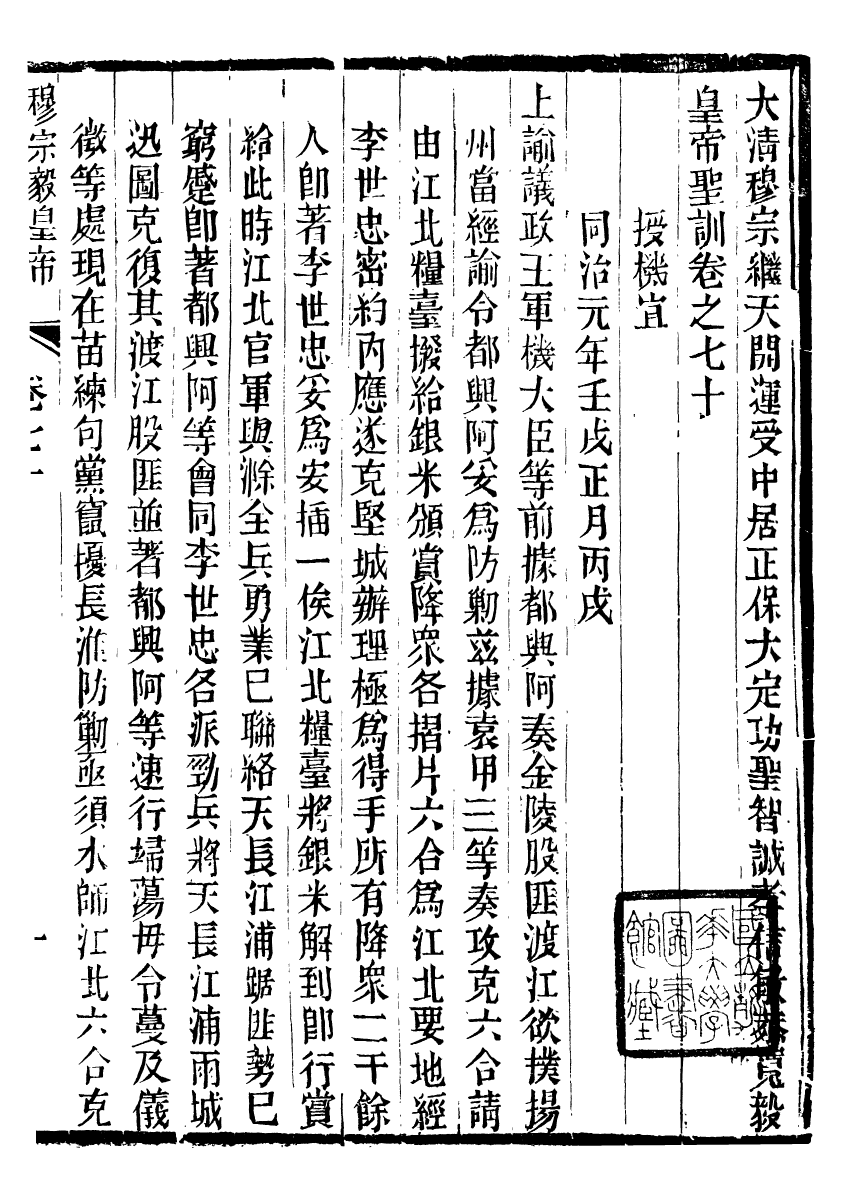 大清穆宗繼天開運受中居正保大定功聖智誠孝信敏恭寬毅
皇帝聖訓卷之七十
授機宜
同治元年壬戌正月丙戌
上諭議政王軍機大臣等前據都興阿奏金陵股匪渡江欲撲揚
州當經諭令都興阿妥為防勦茲據袁甲三等奏攻克六合請
由江北糧臺撥給銀米頒賞降眾各摺片六合為江北要地經
李世忠密約內應遂克堅城辦理極為得手所有降眾二千餘
人即著李世忠妥為安插一俟江北糧臺將銀米解到即行賞
給此時江北官軍與滁全兵勇業已聯絡天長江浦踞匪勢已
窮蹙即著都興阿等會同李世忠各派勁兵將天長江浦兩城
迅圖克復其渡江股匪並著都興阿等速行埽蕩毋令蔓及儀
徵等處現在苗練句黨竄擾長淮防勦亟須水師江北六合克
穆宗毅皇帝
卷七十
一
國立清
華大學
圖書
館藏